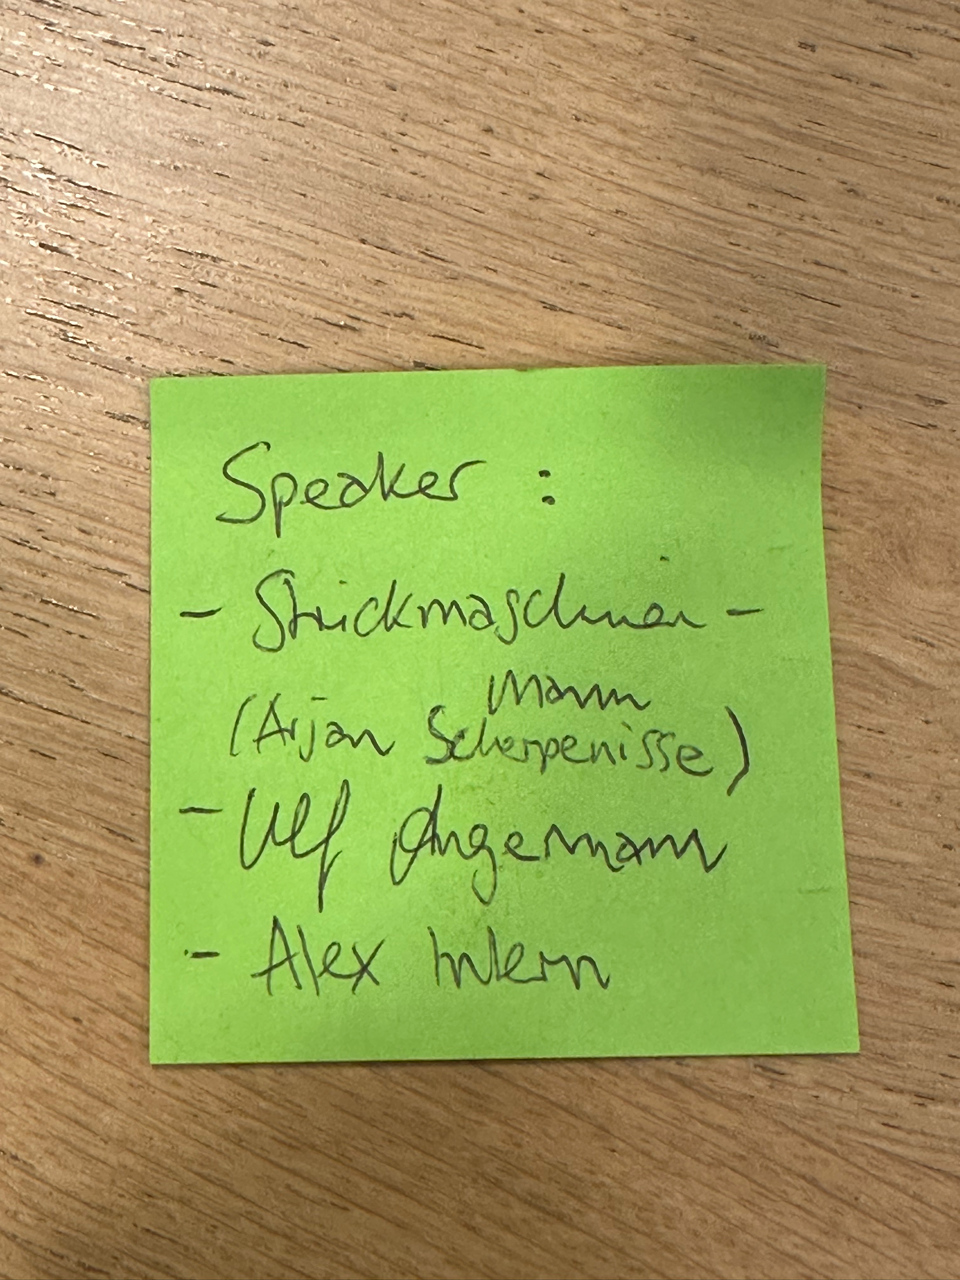 Speaker :
- Strickmaschinen -
Mann
(Arjan Scherpenisse)
- Ulf Angermann
- Alex Intern